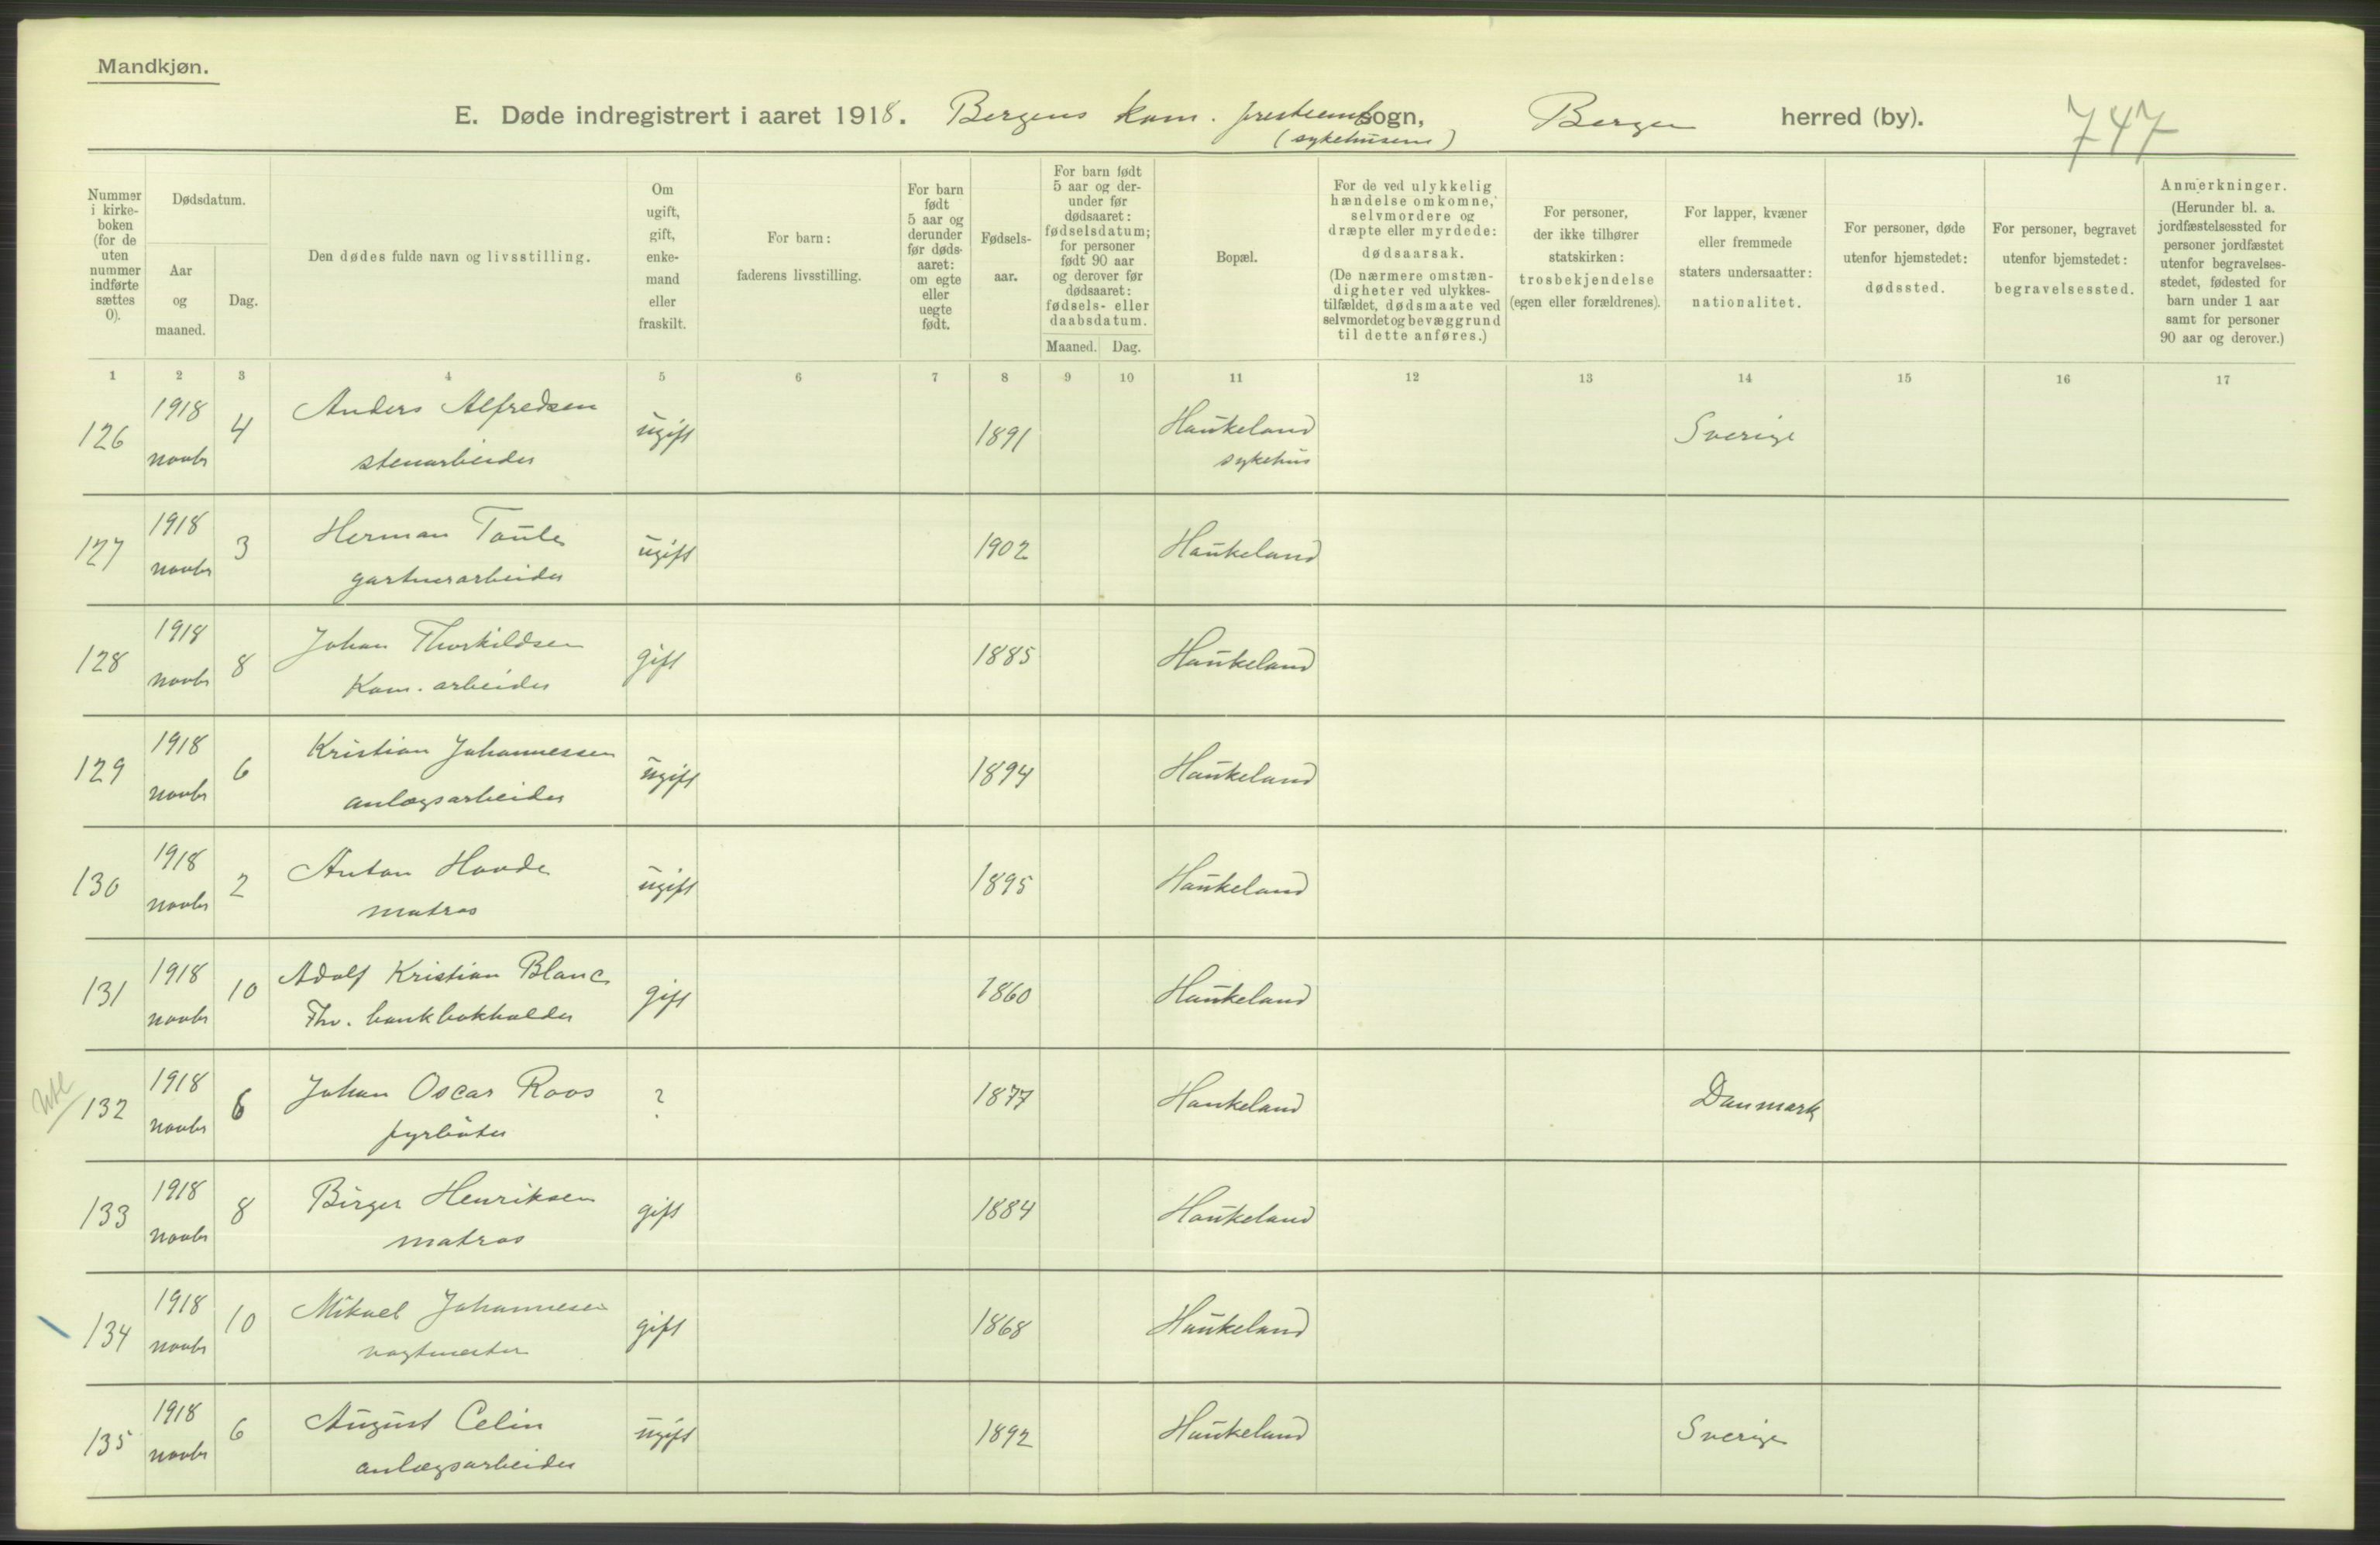 Mandkjøn.
E. Døde indregistrert i aaret 1918. Bergens kom. presteemb. sogn, Bergen herred (by). 747
(sykehusene)
Nummer i kirkeboken (for de uten nummer indførte sættes 0).
Dødsdatum.
Aar og maaned.
Dag.
Den dødes fulde navn og livsstilling.
Om ugift, gift, enkemand eller fraskilt.
For barn: faderens livsstilling.
For barn født 5 aar og derunder før dødsaaret: om egte eller uegte født.
Fødselsaar.
For barn født 5 aar og derunder før dødsaaret: fødselsdatum; for personer født 90 aar og derover før dødsaaret: fødsels- eller daabsdatum.
Maaned. Dag.
Bopæl.
For de ved ulykkelig hændelse omkomne, selvmordere og dræpte eller myrdede: dødsaarsak. (De nærmere omstændigheter ved ulykkestilfældet, dødsmaate ved selvmordet og bevæggrund til dette anføres.)
For personer, der ikke tilhører statskirken: trosbekjendelse (egen eller forældrenes).
For lapper, kvæner eller fremmede staters undersaatter: nationalitet.
For personer, døde utenfor hjemstedet: dødssted.
For personer, begravet utenfor hjemstedet: begravelsessted.
Anmerkninger. (Herunder bl. a. jordfæstelsessted for personer jordfæstet utenfor begravelsesstedet, fødested for barn under 1 aar samt for personer 90 aar og derover.)
1 2 3 4 5 6 7 8 9 10 11 12 13 14 15 16 17
126 1918 novbr 4 Anders Alfredsen ugift 1891 Haukeland Sverige
stenarbeider sykehus
127 1918 novbr 3 Herman Taule ugift 1902 Haukeland
gartnerarbeider
128 1918 novbr 8 Johan Thorkildsen gift 1885 Haukeland
Kom. arbeider
129 1918 novbr 6 Kristian Johannessen ugift 1894 Haukeland
anlægsarbeider
130 1918 novbr 2 Anton Hovde ugift 1895 Haukeland
matros
131 1918 novbr 10 Adolf Kristian Blanc gift 1860 Haukeland
Fhv. bankbokholder
132 1918 novbr 6 Johan Oscar Roos ? 1877 Haukeland Danmark
fyrbøter
133 1918 novbr 8 Birger Henriksen gift 1884 Haukeland
matros
134 1918 novbr 10 Mikael Johannesen gift 1868 Haukeland
vagtmester
135 1918 novbr 6 August Celin ugift 1892 Haukeland Sverige
anlægsarbeider